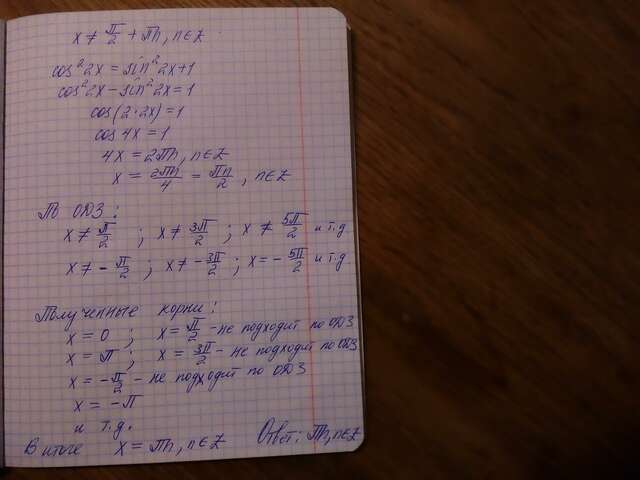 x ≠ π/2 + πn, n∈Z
cos²2x = sin²2x+1
cos²2x - sin²2x = 1
cos(2·2x) = 1
cos4x = 1
4x = 2πn, n∈Z
x = 2πn/4 = πn/2, n∈Z
По ОДЗ:
x ≠ π/2 ; x ≠ 3π/2 ; x ≠ 5π/2 и т.д
x ≠ -π/2 ; x ≠ -3π/2 ; x = -5π/2 и т.д
Полученные корни:
x = 0 ; x = π/2 - не подходит по ОДЗ
x = π ; x = 3π/2 - не подходит по ОДЗ
x = -π/2 - не подходит по ОДЗ
x = -π
и т.д.
В итоге x = πn, n∈Z Ответ: πn, n∈Z